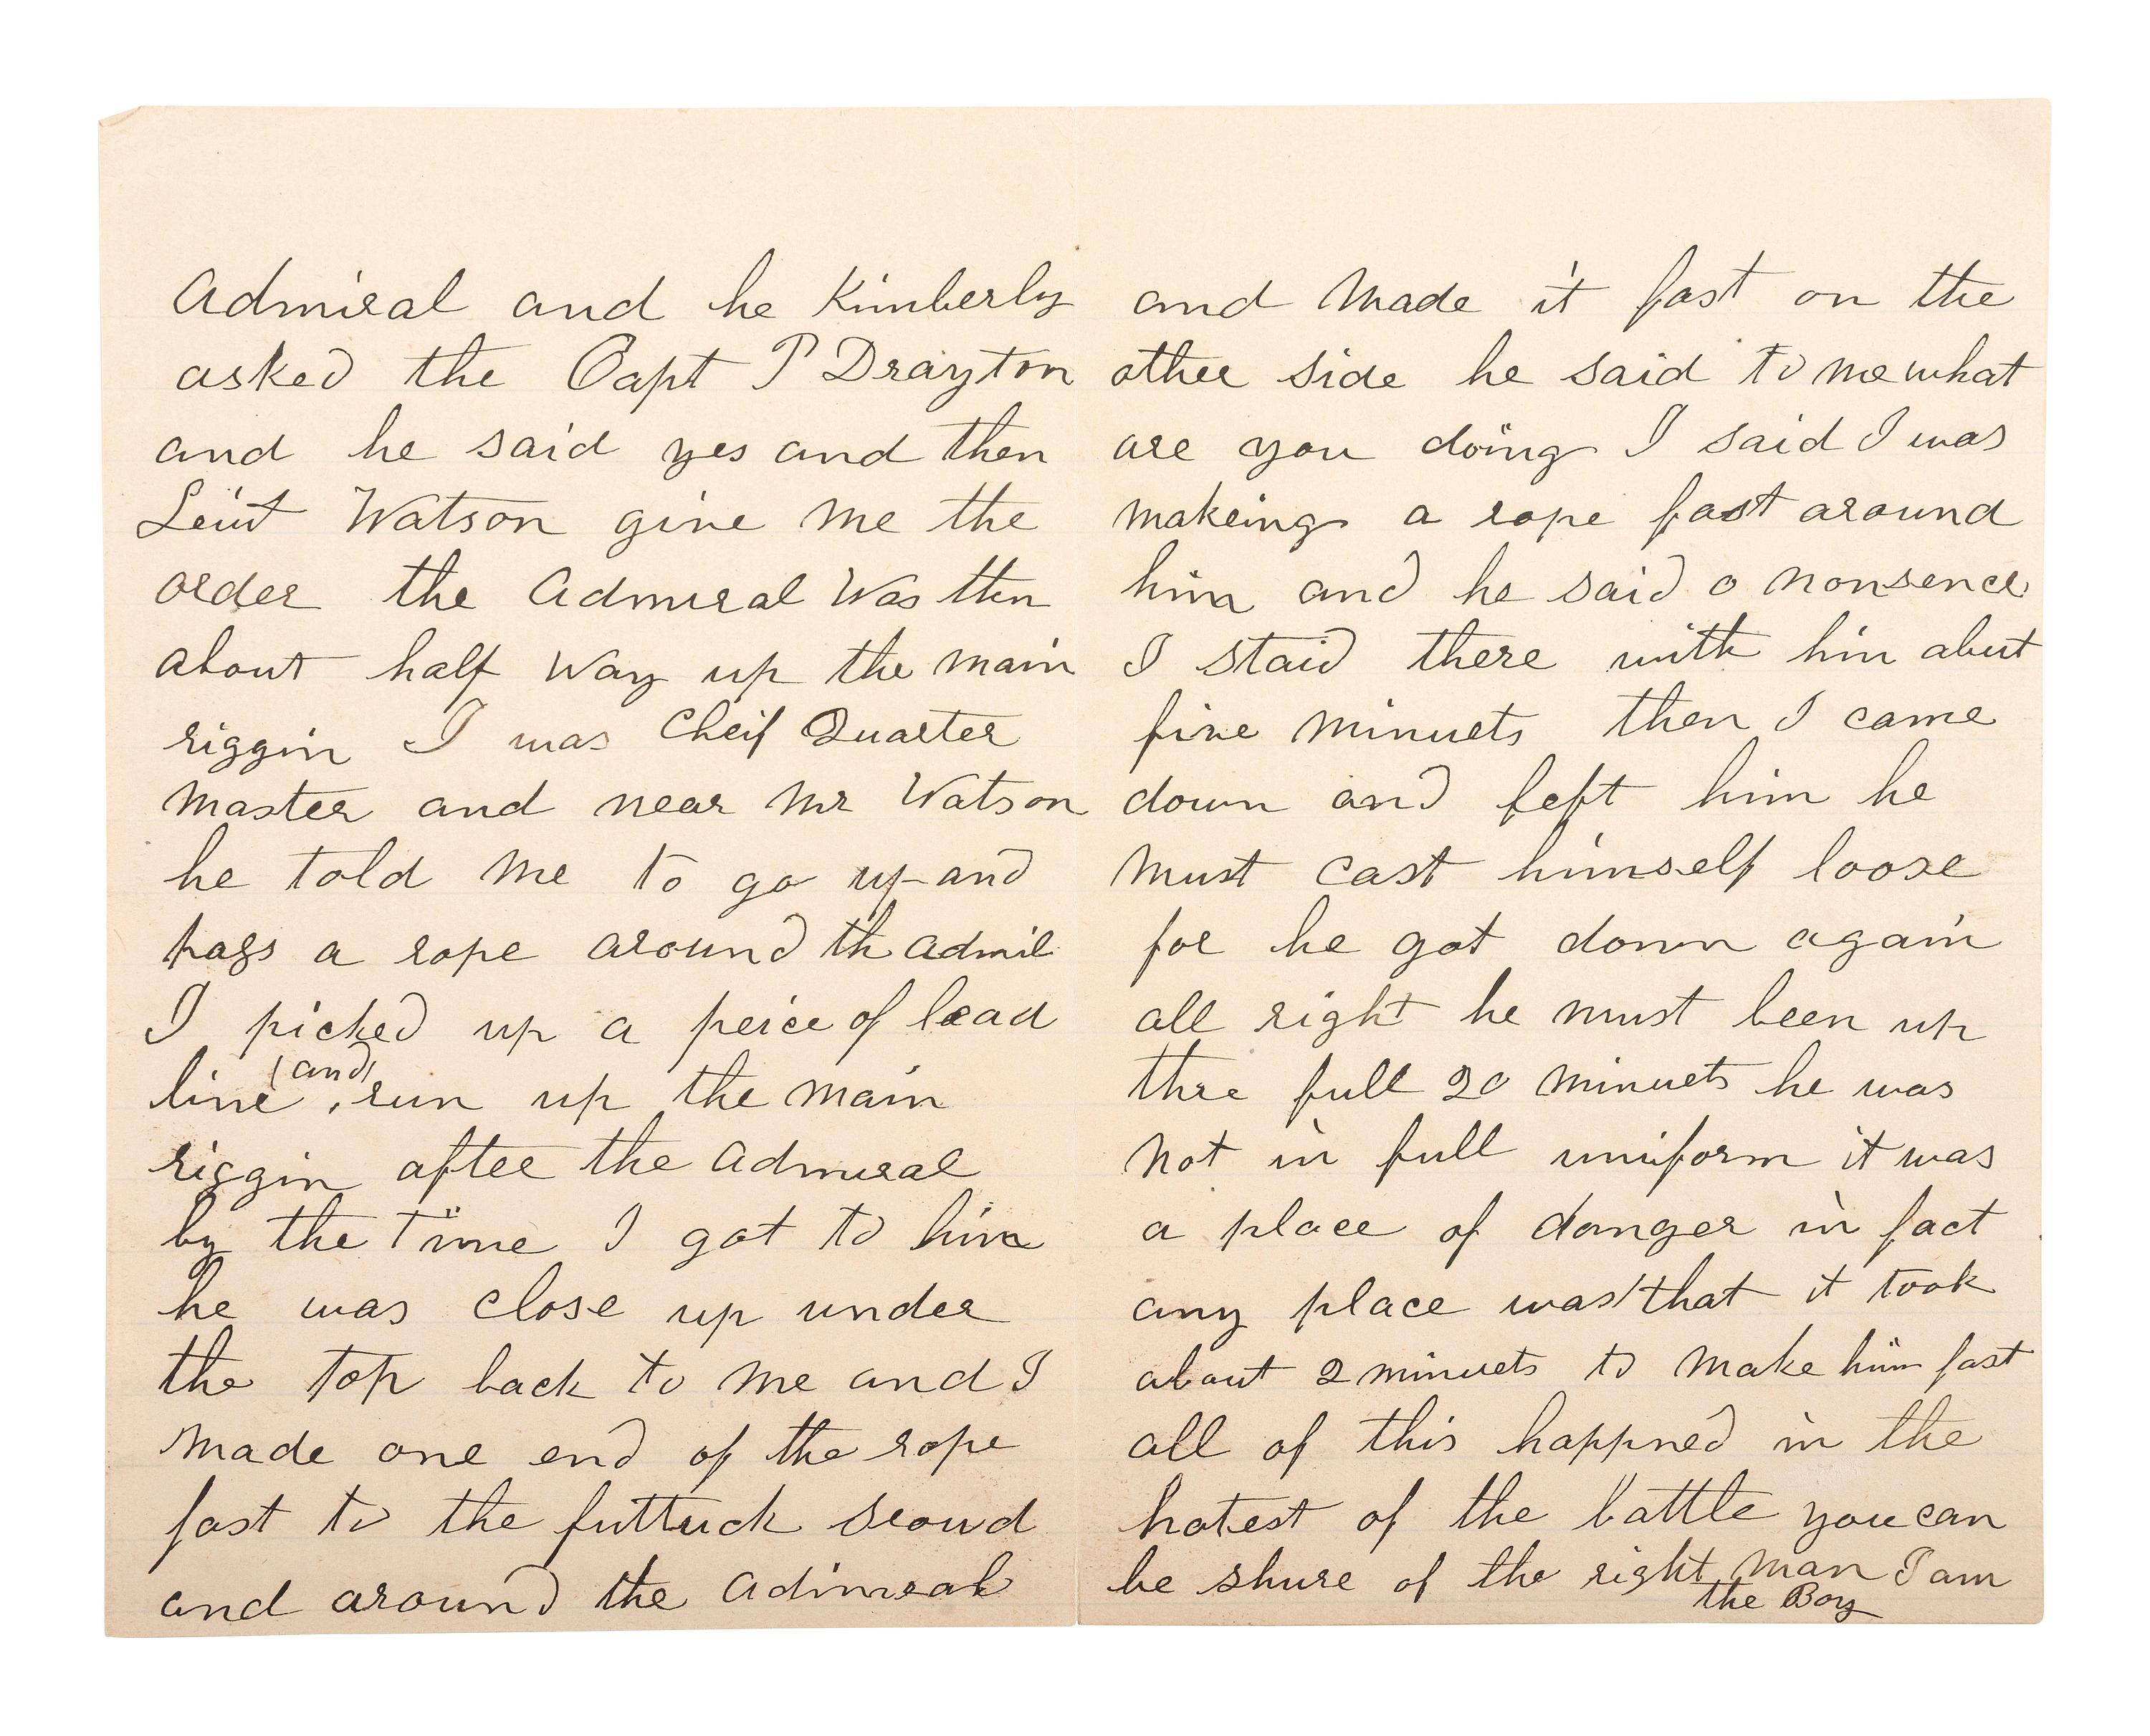 Admiral and he Kimberly
asked the Capt P Drayton
and he said yes and then
Leiut Watson give me the
order the Admiral Was then
about half way up the main
riggin I was Cheif Quarter
Master and near Mr Watson
he told me to go up and
pass a rope around th Admil
I picked up a peice of lead
line (and) run up the main
riggin after the Admiral
by the time I got to him
he was close up under
the top back to me and I
made one end of the rope
fast to the futtuck sroud
and around the Admiral
and made it fast on the
other side he said to me what
are you doing I said I was
makeing a rope fast around
him and he said o nonsence
I staid there with him abut
five minuets then I came
down and left him he
must cast himself loose
for he got down again
all right he must been up
thre full 20 minuets he was
not in full uniform it was
a place of danger in fact
any place was that it took
about 2 minuets to make him fast
all of this happned in the
hotest of the battle you can
be shure of the right man I am
the Boy